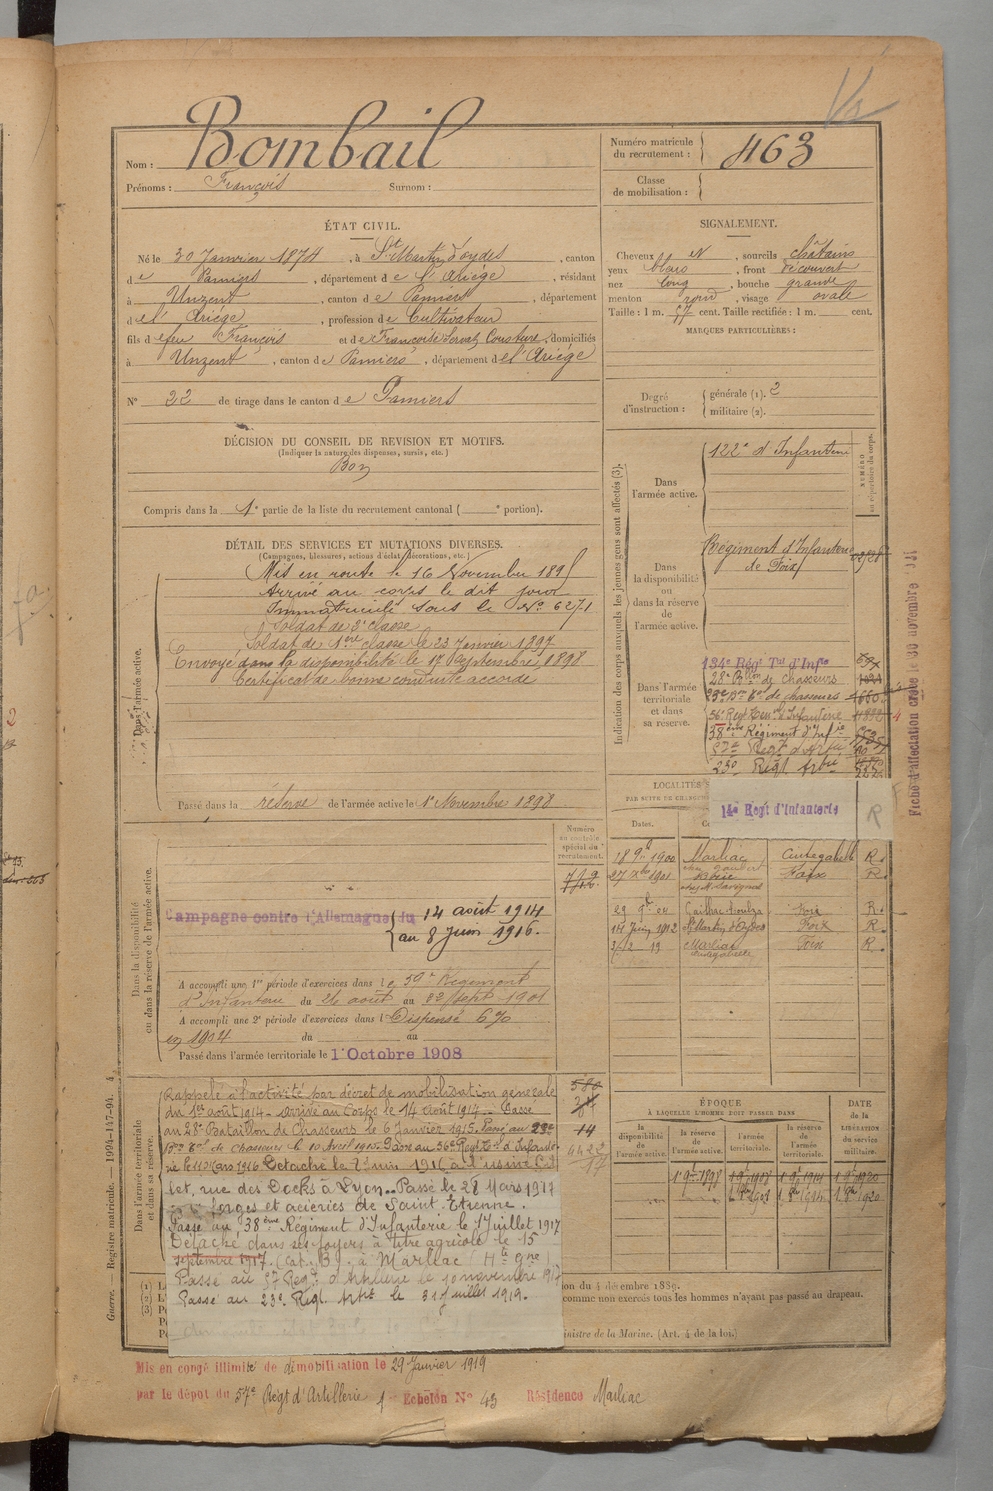 Nom : Bombail
Prénoms : François Surnom :
Numéro matricule du recrutement : 463
Classe de mobilisation :
ÉTAT CIVIL.
Né le 30 Janvier 1874, à St Martin d'oydes, canton
de Pamiers, département de l'Ariége, résidant
à Unzent, canton de Pamiers, département
de l'Ariége, profession de Cultivateur
fils de feu François et de Françoise Couture, domiciliés
à Unzent, canton de Pamiers, département de l'Ariége
N° 22 de tirage dans le canton de Pamiers
SIGNALEMENT.
Cheveux N, sourcils châtains
yeux front découvert
nez long, bouche grande
menton rond, visage ovale
Taille : 1 m. 57 cent. Taille rectifiée : 1 m. cent.
MARQUES PARTICULIÈRES :
Degré d'instruction : générale (1). 2
militaire (2).
DÉCISION DU CONSEIL DE REVISION ET MOTIFS.
(Indiquer la nature des dispenses, sursis, etc.)
Bon
Compris dans la 1e partie de la liste du recrutement cantonal ( e portion).
DÉTAIL DES SERVICES ET MUTATIONS DIVERSES.
(Campagnes, blessures, actions d'éclat, décorations, etc.)
Dans l'armée active.
Mis en route le 16 Novembre 1895
Arrivé au corps le dit jour
Immatriculé sous le N° 6271
Soldat de 2e classe
Soldat de 1ère classe le 23 Janvier 1897
Envoyé dans la disponibilité le 17 Septembre 1898
Certificat de bonne conduite accordé
Passé dans la réserve de l'armée active le 1er Novembre 1898
Indication des corps auxquels les jeunes gens sont affectés (3).
NUMÉRO au répertoire du corps.
Dans l'armée active. 122e d'Infanterie
Dans la disponibilité ou dans la réserve de l'armée active. Régiment d'Infanterie de Foix
Dans l'armée territoriale et dans sa réserve.
134e Régt Tal d'Infie
28e Bllon de Chasseurs
23e Bon Tal de chasseurs
56e Regt d'Infanterie
38ème Régiment d'Infie
57e Regt d'Artie
23e Régt Artie
14e Regt d'Infanterie R
Fiche d'affectation
LOCALITÉS
Dates.
18 9bre 1900 Marliac Cintegabelle R.
27 1901 Foix R.
Foix R.
14 Juin 1912 St Martin d'Oydes Foix R.
Marliac Foix R.
Dans la disponibilité ou dans la réserve de l'armée active.
Numéro au contrôle spécial du recrutement.
Campagne contre l'Allemagne du 14 août 1914
au 8 Juin 1916.
A accompli une 1re période d'exercices dans le 59e Régiment
d'Infanterie du 26 août au 22 Sept 1901
A accompli une 2e période d'exercices dans l Dispensé
en 1904 du au
Passé dans l'armée territoriale le 1er Octobre 1908
Dans l'armée territoriale et dans sa réserve.
Rappelé à l'activité par décret de mobilisation générale
du 1er août 1914 - arrivé au Corps le 14 août 1914 - Passé
au 28e Bataillon de Chasseurs le 6 Janvier 1915. Passé au 23e
Bon Tal de chasseurs le 10 Avril 1915. Passé au 56e Regt Tal d'Infante-
rie le 11 Mars 1916 Détaché le 8 Juin 1916 à l'usine
let, rue des Docks à Lyon. Passé le 28 Mars 1917
forges et acieries de Saint-Etienne.
Passé au 38ème Régiment d'Infanterie le 1 Juillet 1917
Détaché dans ses foyers à titre agricole le 15
septembre 1917. (Cat. B). à Marliac (Hte Gne)
Passé au 57 Regt d'Artillerie le 10 novembre 1917
Passé au 23e Régt. Artie le 31 Juillet 1919.
ÉPOQUE
À LAQUELLE L'HOMME DOIT PASSER DANS
la disponibilité de l'armée active.
la réserve de l'armée active.
l'armée territoriale.
la réserve de l'armée territoriale.
DATE de la LIBÉRATION du service militaire.
1 9bre 1898
Guerre. — Registre matricule. — 1994-147-94.
ion du 4 décembre 1889.
comme non exercés tous les hommes n'ayant pas passé au drapeau.
inistre de la Marine. (Art. 4 de la loi.)
Mis en congé illimité de démobilisation le 29 Janvier 1919
par le dépot du 57e Régt d'Artillerie 1er Echelon N° 43 Résidence Marliac